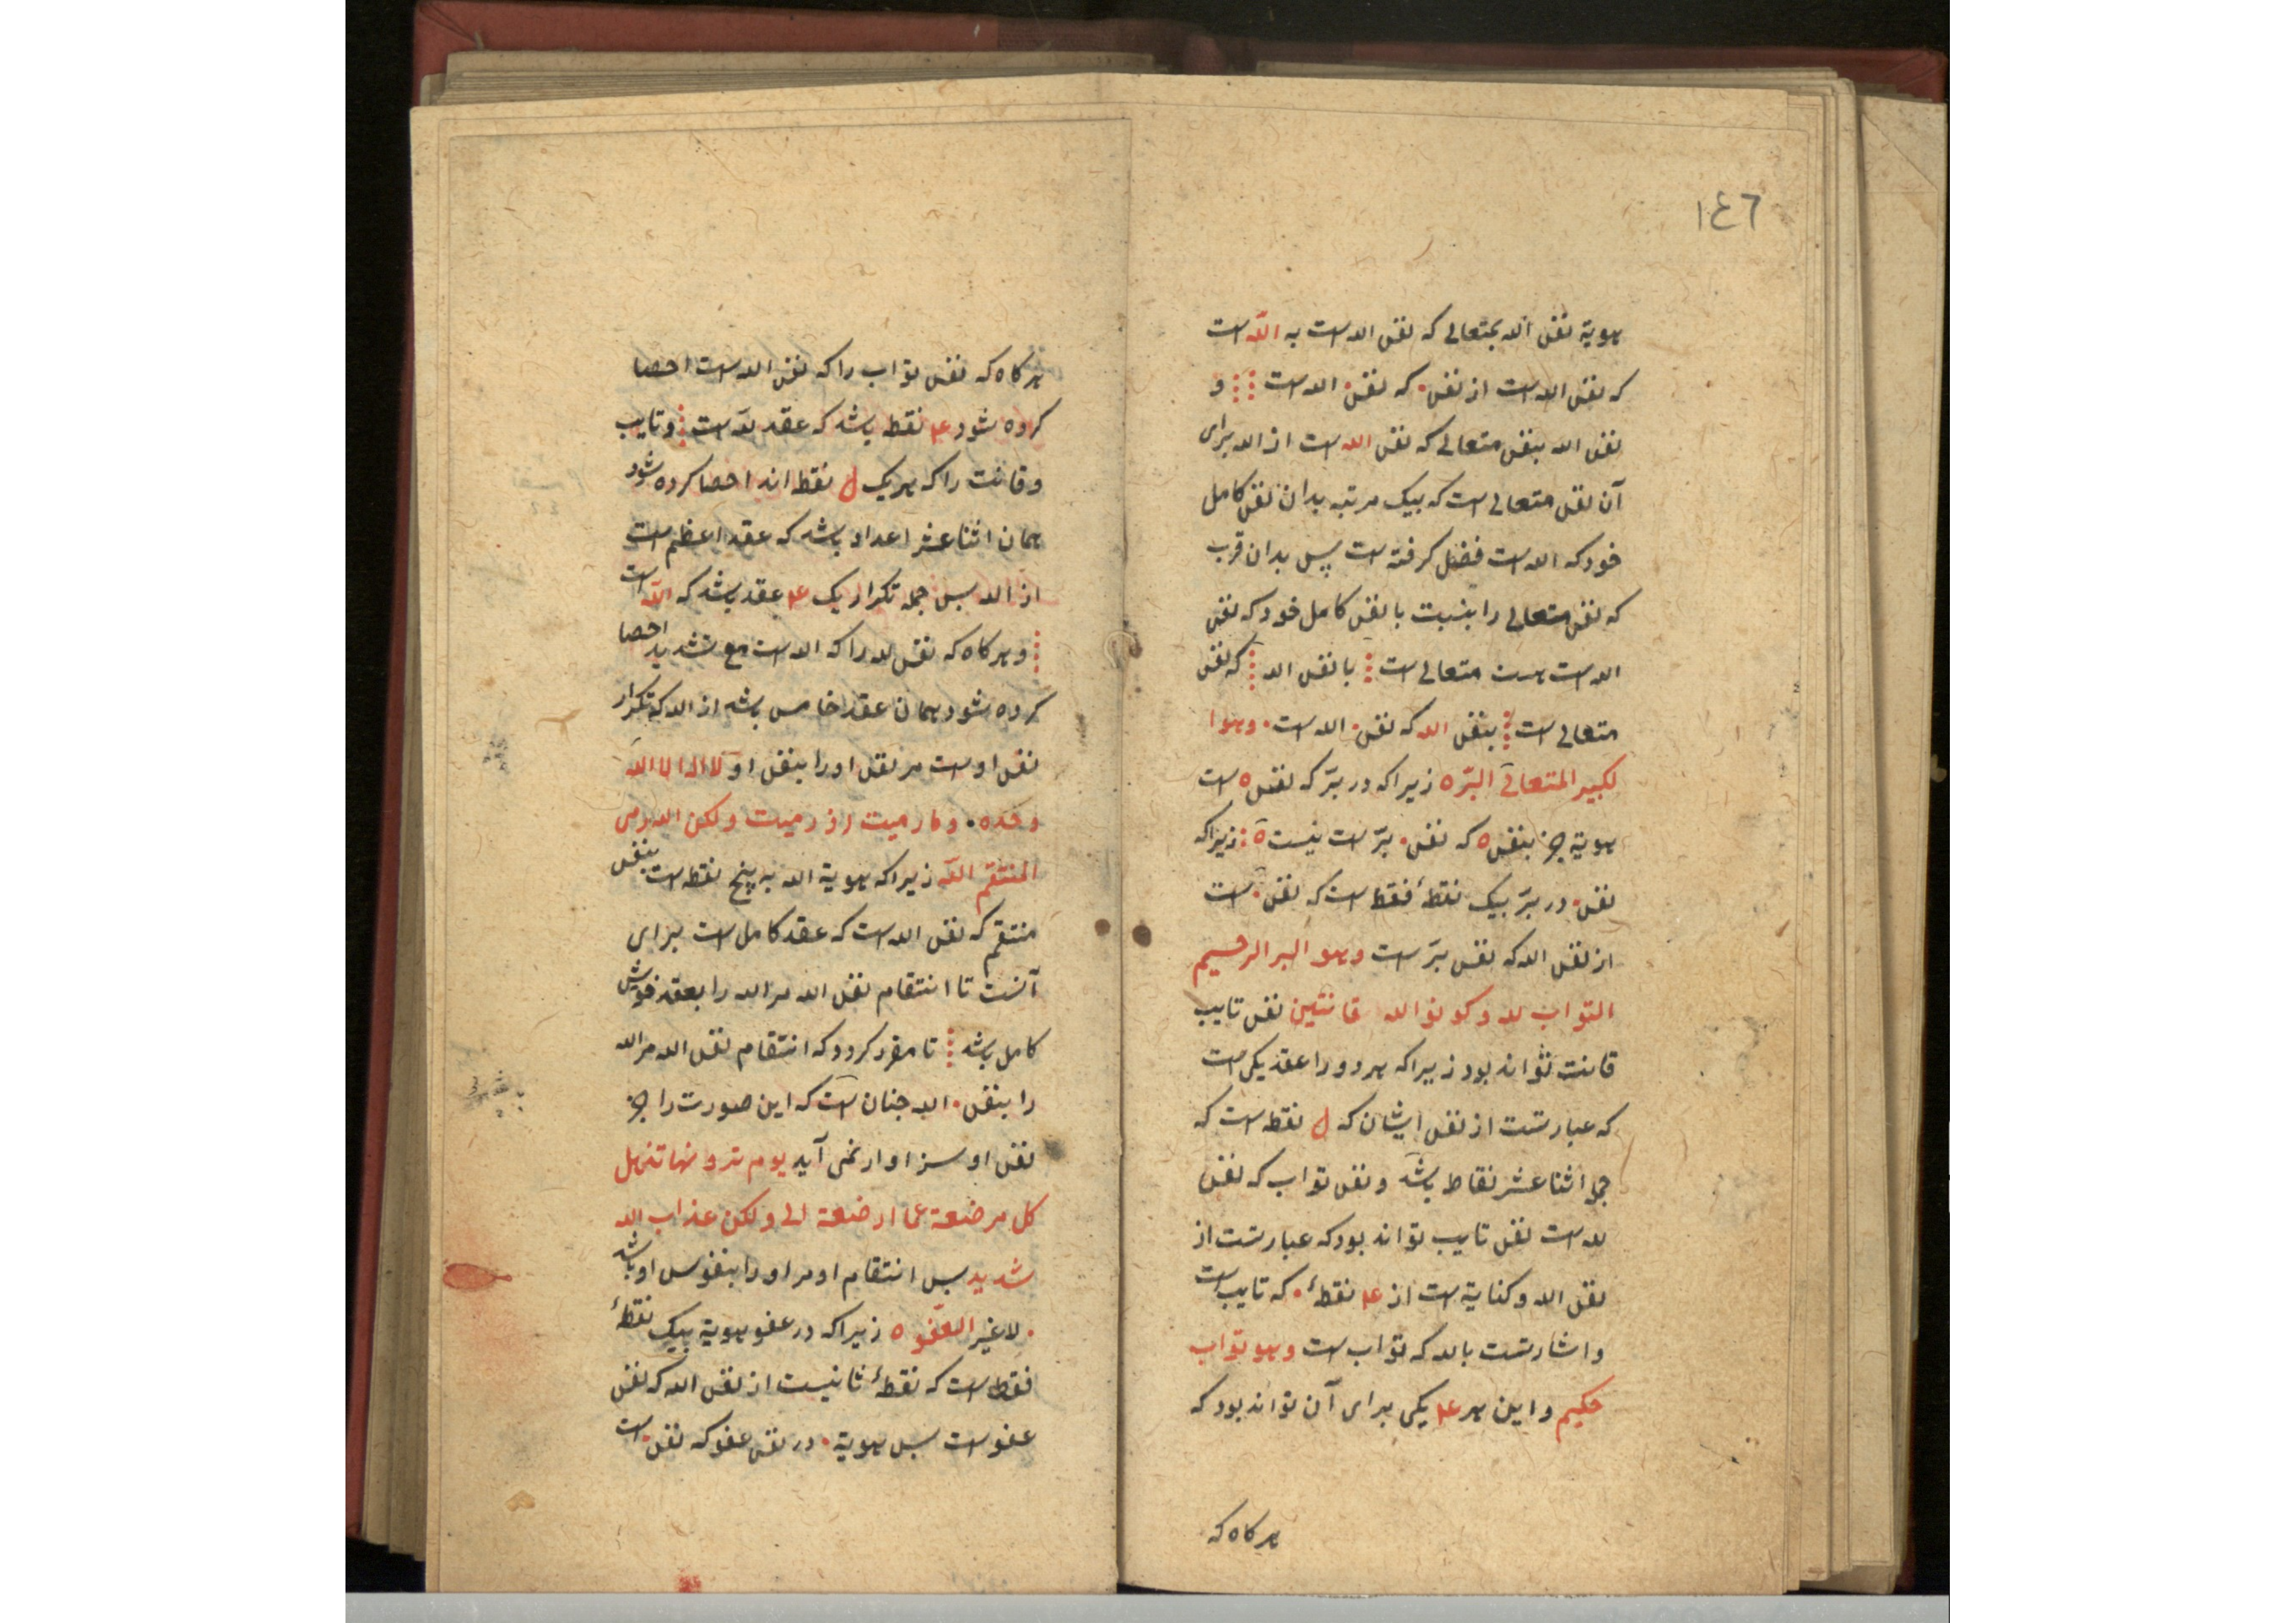 ١٤٦
هویة نفس الله بمتعالی که نفس الله است به الله است
که نفس الله است از نفس . که نفس . الله است و
نفس الله بنفس متعالی که نفس الله است از الله برای
آن نفس متعالی است که بیک مرتبه بدان نفس کامل
خود که الله است فضل گرفته است پس بدان قرب
که نفس متعالی را بنسبت با نفس کامل خود که نفس
الله است هست متعالی است با نفس الله که نفس
متعالی است بنفس الله که نفس . الله است . وهوا
لکبیر المتعالی البرّ ه زیراکه در برّ که نفس ه است
هویة جز بنفس ه که نفس . برّ است نیست ه : زیراکه
نفس . در برّ بیک نقطهٔ فقط است که نفس . است
از نفس الله که نفس برّ است وهو البر الرحیم
التواب لله وکونوا لله قانتین نفس تایب
قانت تواند بود زیراکه هردو را عقد یکی است
که عبارتست از نفس ایشان که ل نقطه است که
جمله اثنا عشر نقاط باشد و نفس تواب که نفس
لله است نفس تایب تواند بود که عبارتست از
نفس الله و کنایة است از ۴ نقطهٔ . که تایب است
و اشارتست بالله که تواب است وهو تواب
حکیم و این هر ۴ یکی برای آن تواند بود که
هرکاه که
هرکاه که نفس تواب را که نفس الله است احصا
کرده شود ۴ نقطه باشد که عقد لله است و تایب
و قانت را که هریک ل نقطه اند احصا کرده شود
همان اثنا عشر اعداد باشد که عقد اعظم است
از الله پس جمله تکرار یک ۴ عقد باشد که الله است
و هرکاه که نفس لله را که الله است مع تشدید احصا
کرده شود همان عقد خامس باشد از الله که تکرار
نفس اوست مر نفس او را بنفس او لا اله الا الله
وحده . وما رمیت اذ رمیت ولکن الله رمی
المنتقم الله زیراکه هویة الله به پنج نقطه است بنفس
منتقم که نفس الله است که عقد کامل است برای
آنست تا انتقام نفس الله مر الله را بعقد خویش
کامل باشد تا مقرر کردد که انتقام نفس الله مر الله
را بنفس . الله چنان است که این صورت را جز
نفس او سزاوار نمی آید یوم ترونها تذهل
کل مرضعة عما ارضعت الی ولکن عذاب الله
شدید پس انتقام او مر او را بنفوس او باشد
. لاغیر العفو ه زیراکه در عفو هویة بیک نقطهٔ
فقط است که نقطهٔ ثانیست از نفس الله که نفس
عفو است پس هویة . در نفس عفو که نفس . است